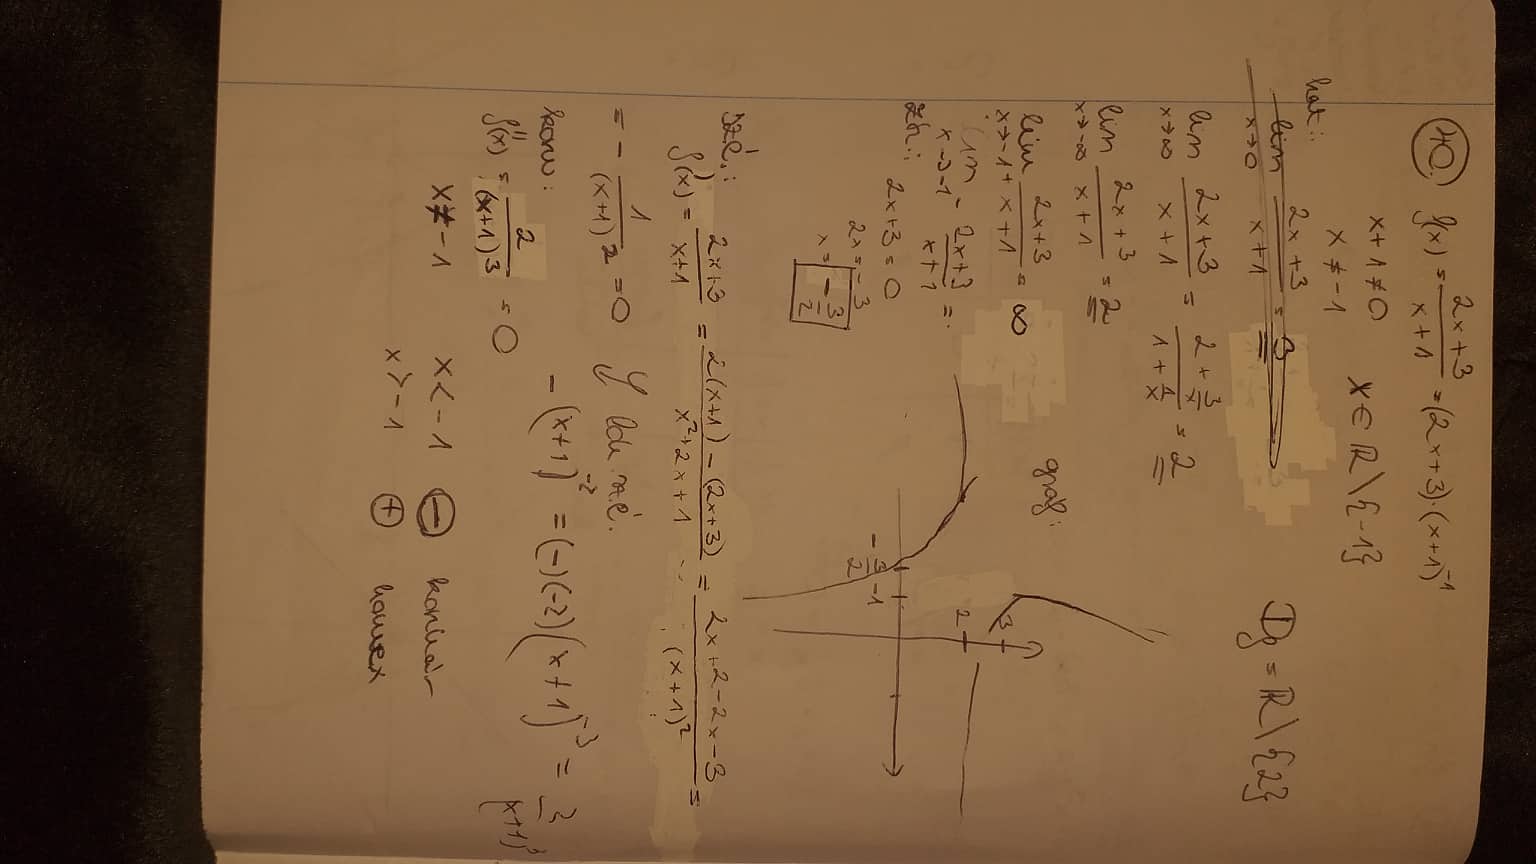 10. f(x) = (2x+3)/(x+1) = (2x+3)·(x+1)^-1
x+1≠0
x≠-1
x∈ℝ\{-1}
hat:
lim x→0 (2x+3)/(x+1) = 3
D_f = ℝ\{2}
lim x→∞ (2x+3)/(x+1) = (2+3/x)/(1+1/x) = 2
lim x→-∞ (2x+3)/(x+1) = 2
lim x→-1+ (2x+3)/(x+1) = ∞
lim x→-1- (2x+3)/(x+1) =
graf:
3
2
-3/2 -1
zh:
2x+3=0
2x=-3
x= -3/2
szé:
f'(x) = (2x+3)/(x+1) = (2(x+1)-(2x+3))/(x²+2x+1) = (2x+2-2x-3)/(x+1)² =
= -1/(x+1)² = 0
szé.
konv:
-(x+1)^-2 = (-)(-2)(x+1)^-3 =
(x+1)³
f''(x) = 2/(x+1)³ = 0
x≠-1
x<-1 ⊖ konkáv
x>-1 ⊕ konvex